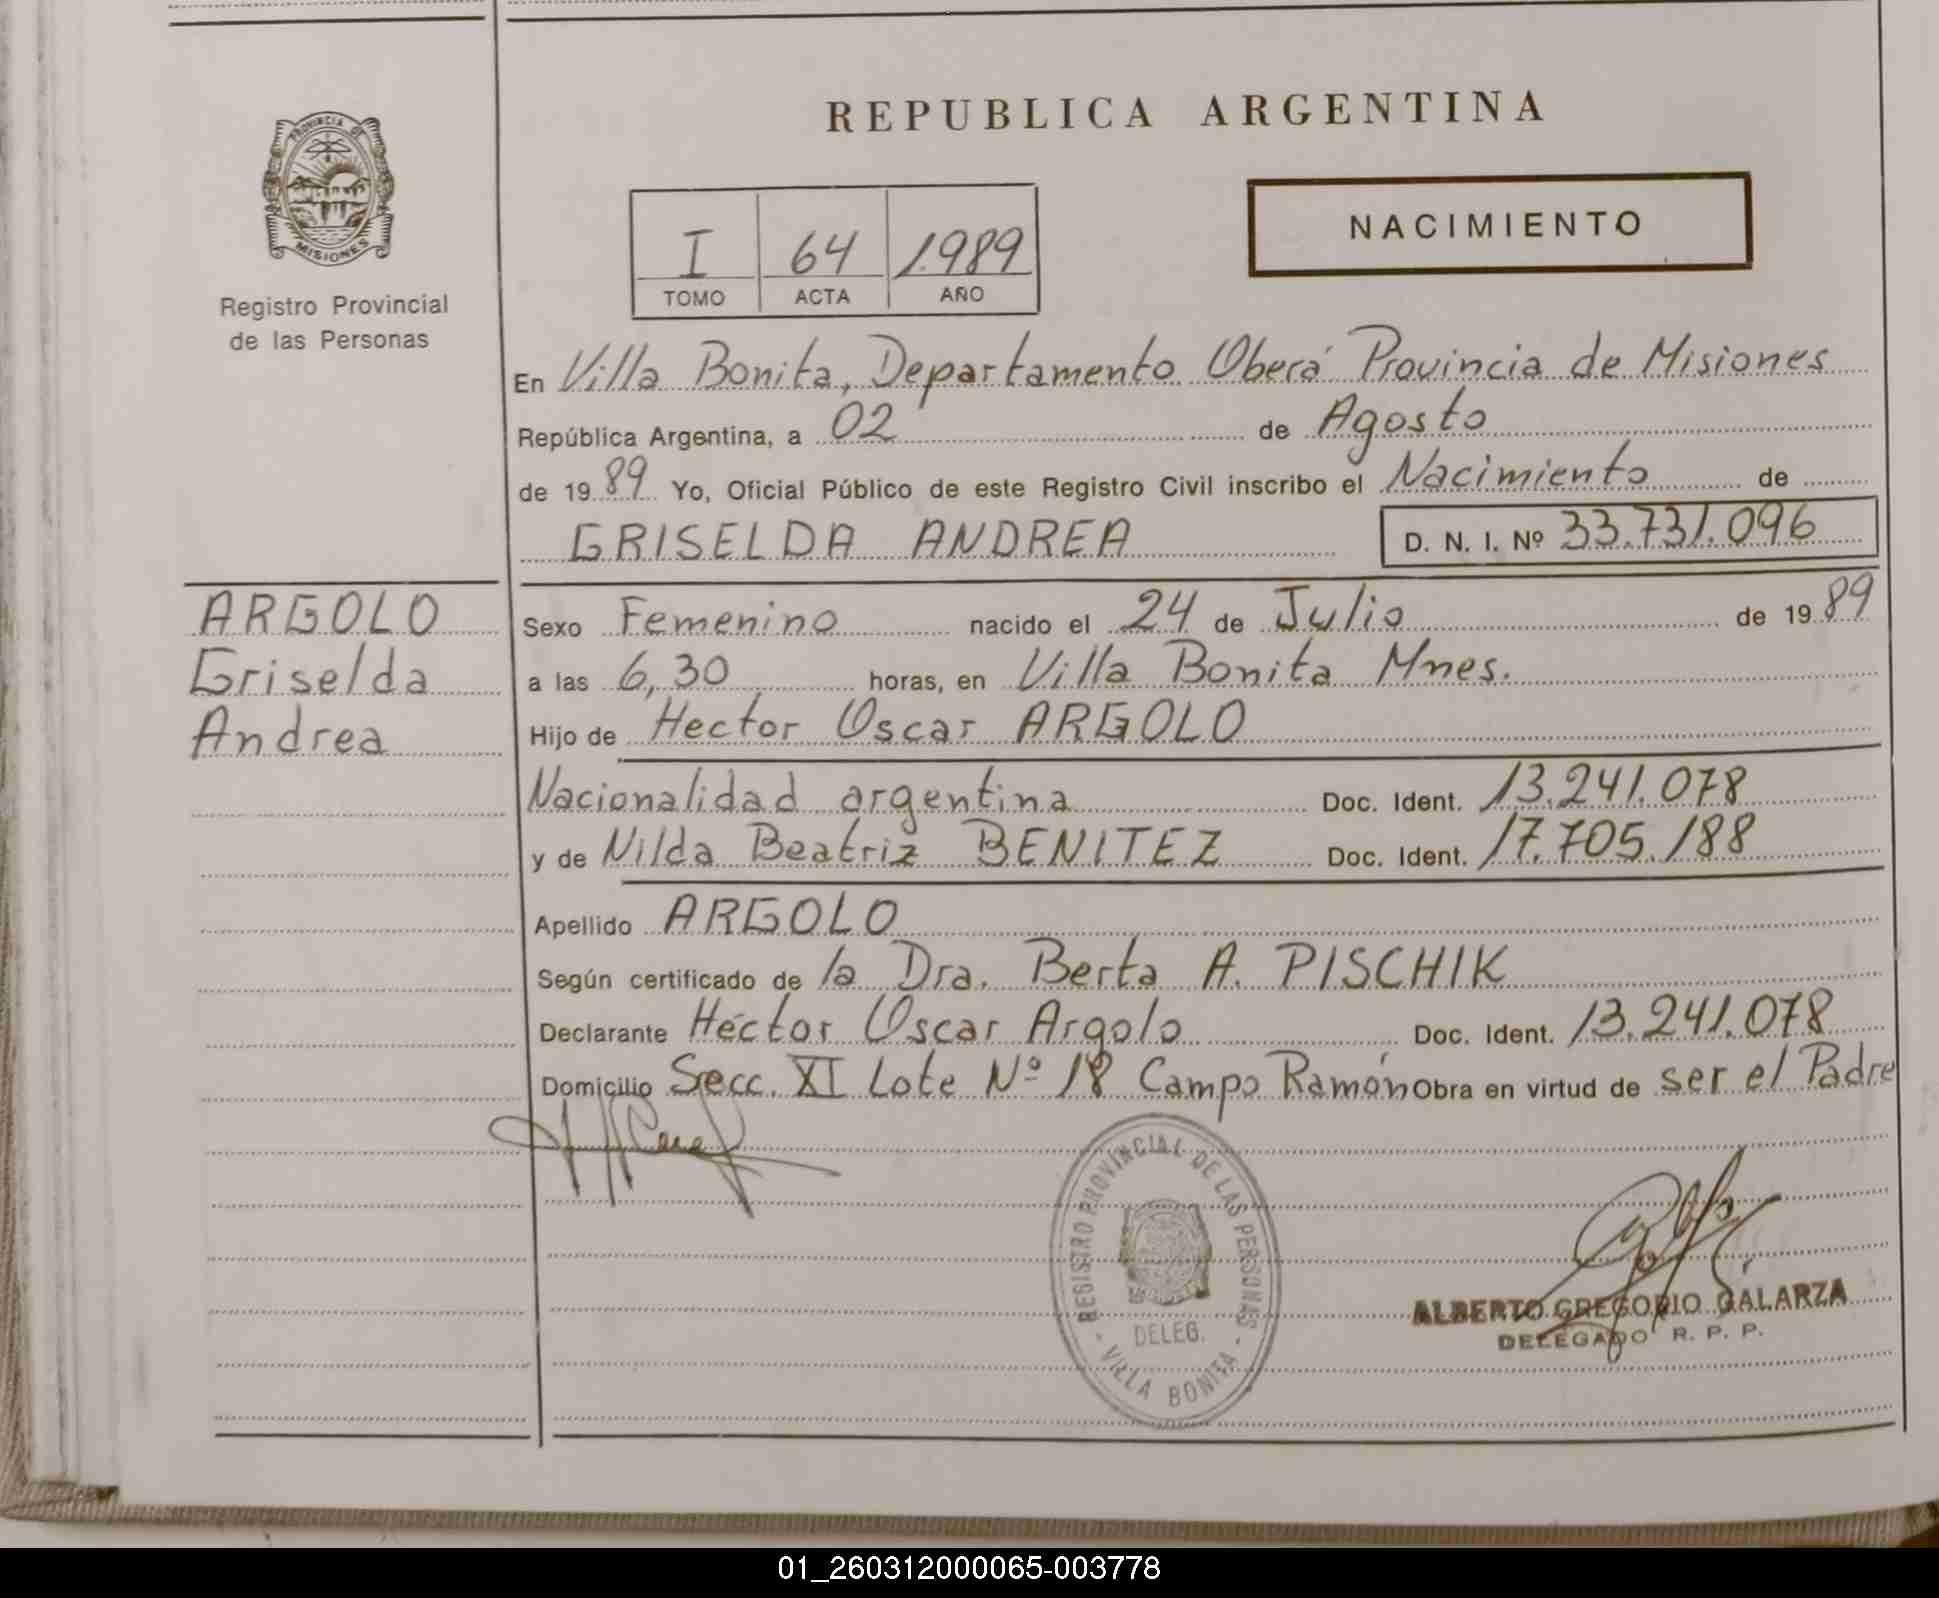 PROVINCIA DE
MISIONES
Registro Provincial
de las Personas
REPUBLICA ARGENTINA
I 64 1.989
TOMO ACTA AÑO
NACIMIENTO
En Villa Bonita, Departamento Oberá Provincia de Misiones
República Argentina, a 02 de Agosto
de 19 89 Yo, Oficial Público de este Registro Civil inscribo el Nacimiento de
GRISELDA ANDREA D. N. I. Nº 33.731.096
ARGOLO
Griselda
Andrea
Sexo Femenino nacido el 24 de Julio de 19 89
a las 6,30 horas, en Villa Bonita Mnes.
Hijo de Hector Oscar ARGOLO
Nacionalidad argentina Doc. Ident. 13.241.078
y de Nilda Beatriz BENITEZ Doc. Ident. 17.705.188
Apellido ARGOLO
Según certificado de la Dra. Berta A. PISCHIK
Declarante Héctor Oscar Argolo Doc. Ident. 13.241.078
Domicilio Secc. XI Lote Nº 18 Campo Ramón Obra en virtud de ser el Padre
REGISTRO PROVINCIAL DE LAS PERSONAS
DELEG.
- VILLA BONITA -
ALBERTO GREGORIO GALARZA
DELEGADO R. P. P.
01_260312000065-003778